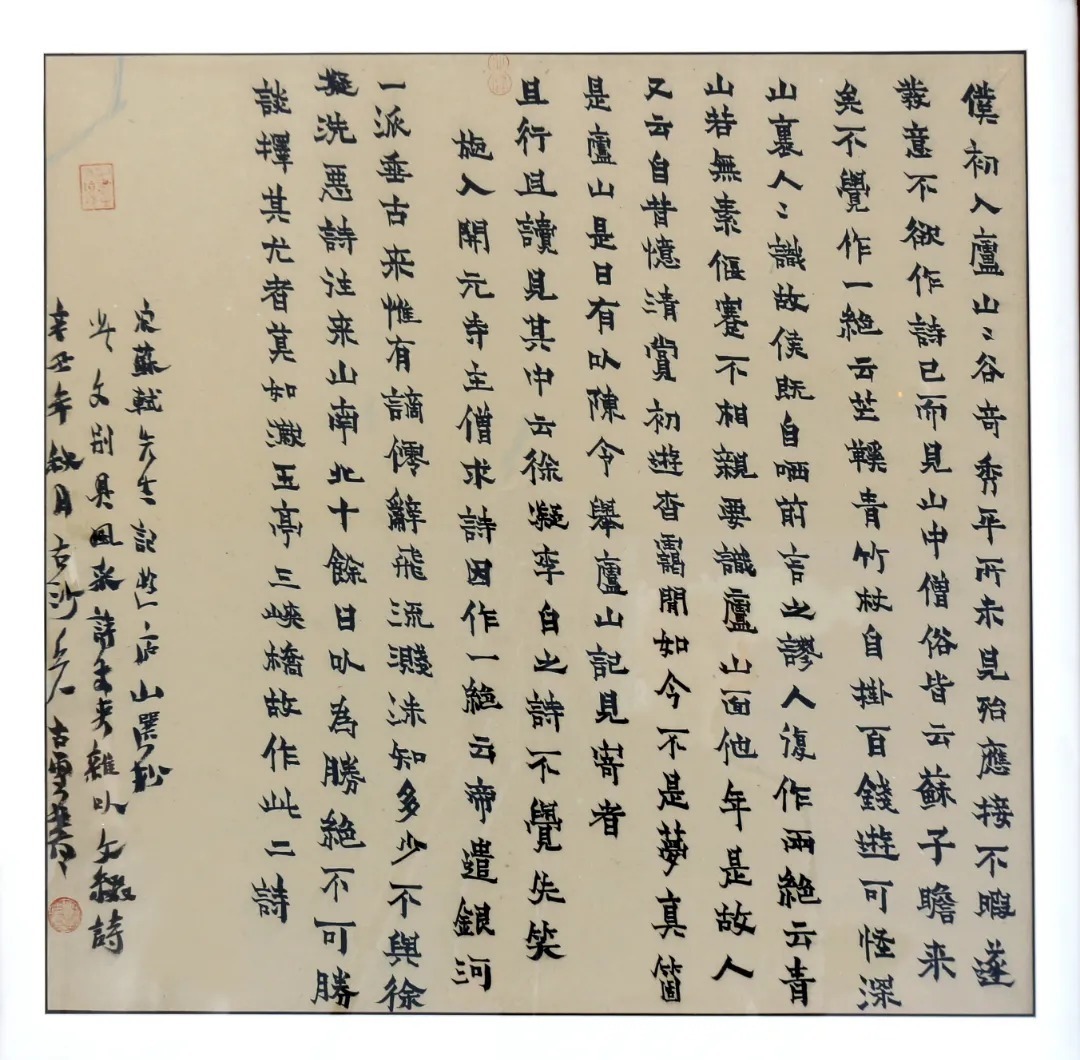 僕初入廬山〻谷奇秀平所未見殆應接不暇遂
發意不欲作詩已而見山中僧俗皆云蘇子瞻来
矣不覺作一絕云芒鞵青竹杖自掛百錢遊可怪深
山裏人〻識故侯既自哂前言之謬人復作兩絕云青
山若無素偃蹇不相親要識廬山面他年是故人
又云自昔憶清賞初遊杳靄間如今不是夢真箇
是廬山是日有以陳令舉廬山記見寄者
且行且讀見其中云徐凝李白之詩不覺失笑
旋入開元寺主僧求詩因作一絕云帝遣銀河
一派垂古来惟有謫僊辭飛流濺沫知多少不與徐
凝洗惡詩注来山南北十餘日以為勝絕不可勝
談擇其尤者莫如漱玉亭三峽橋故作此二詩
宋蘇軾先生記遊庐山墨抄
此文别具風采詩来雜以文綴詩
辛丑年秋月古沙